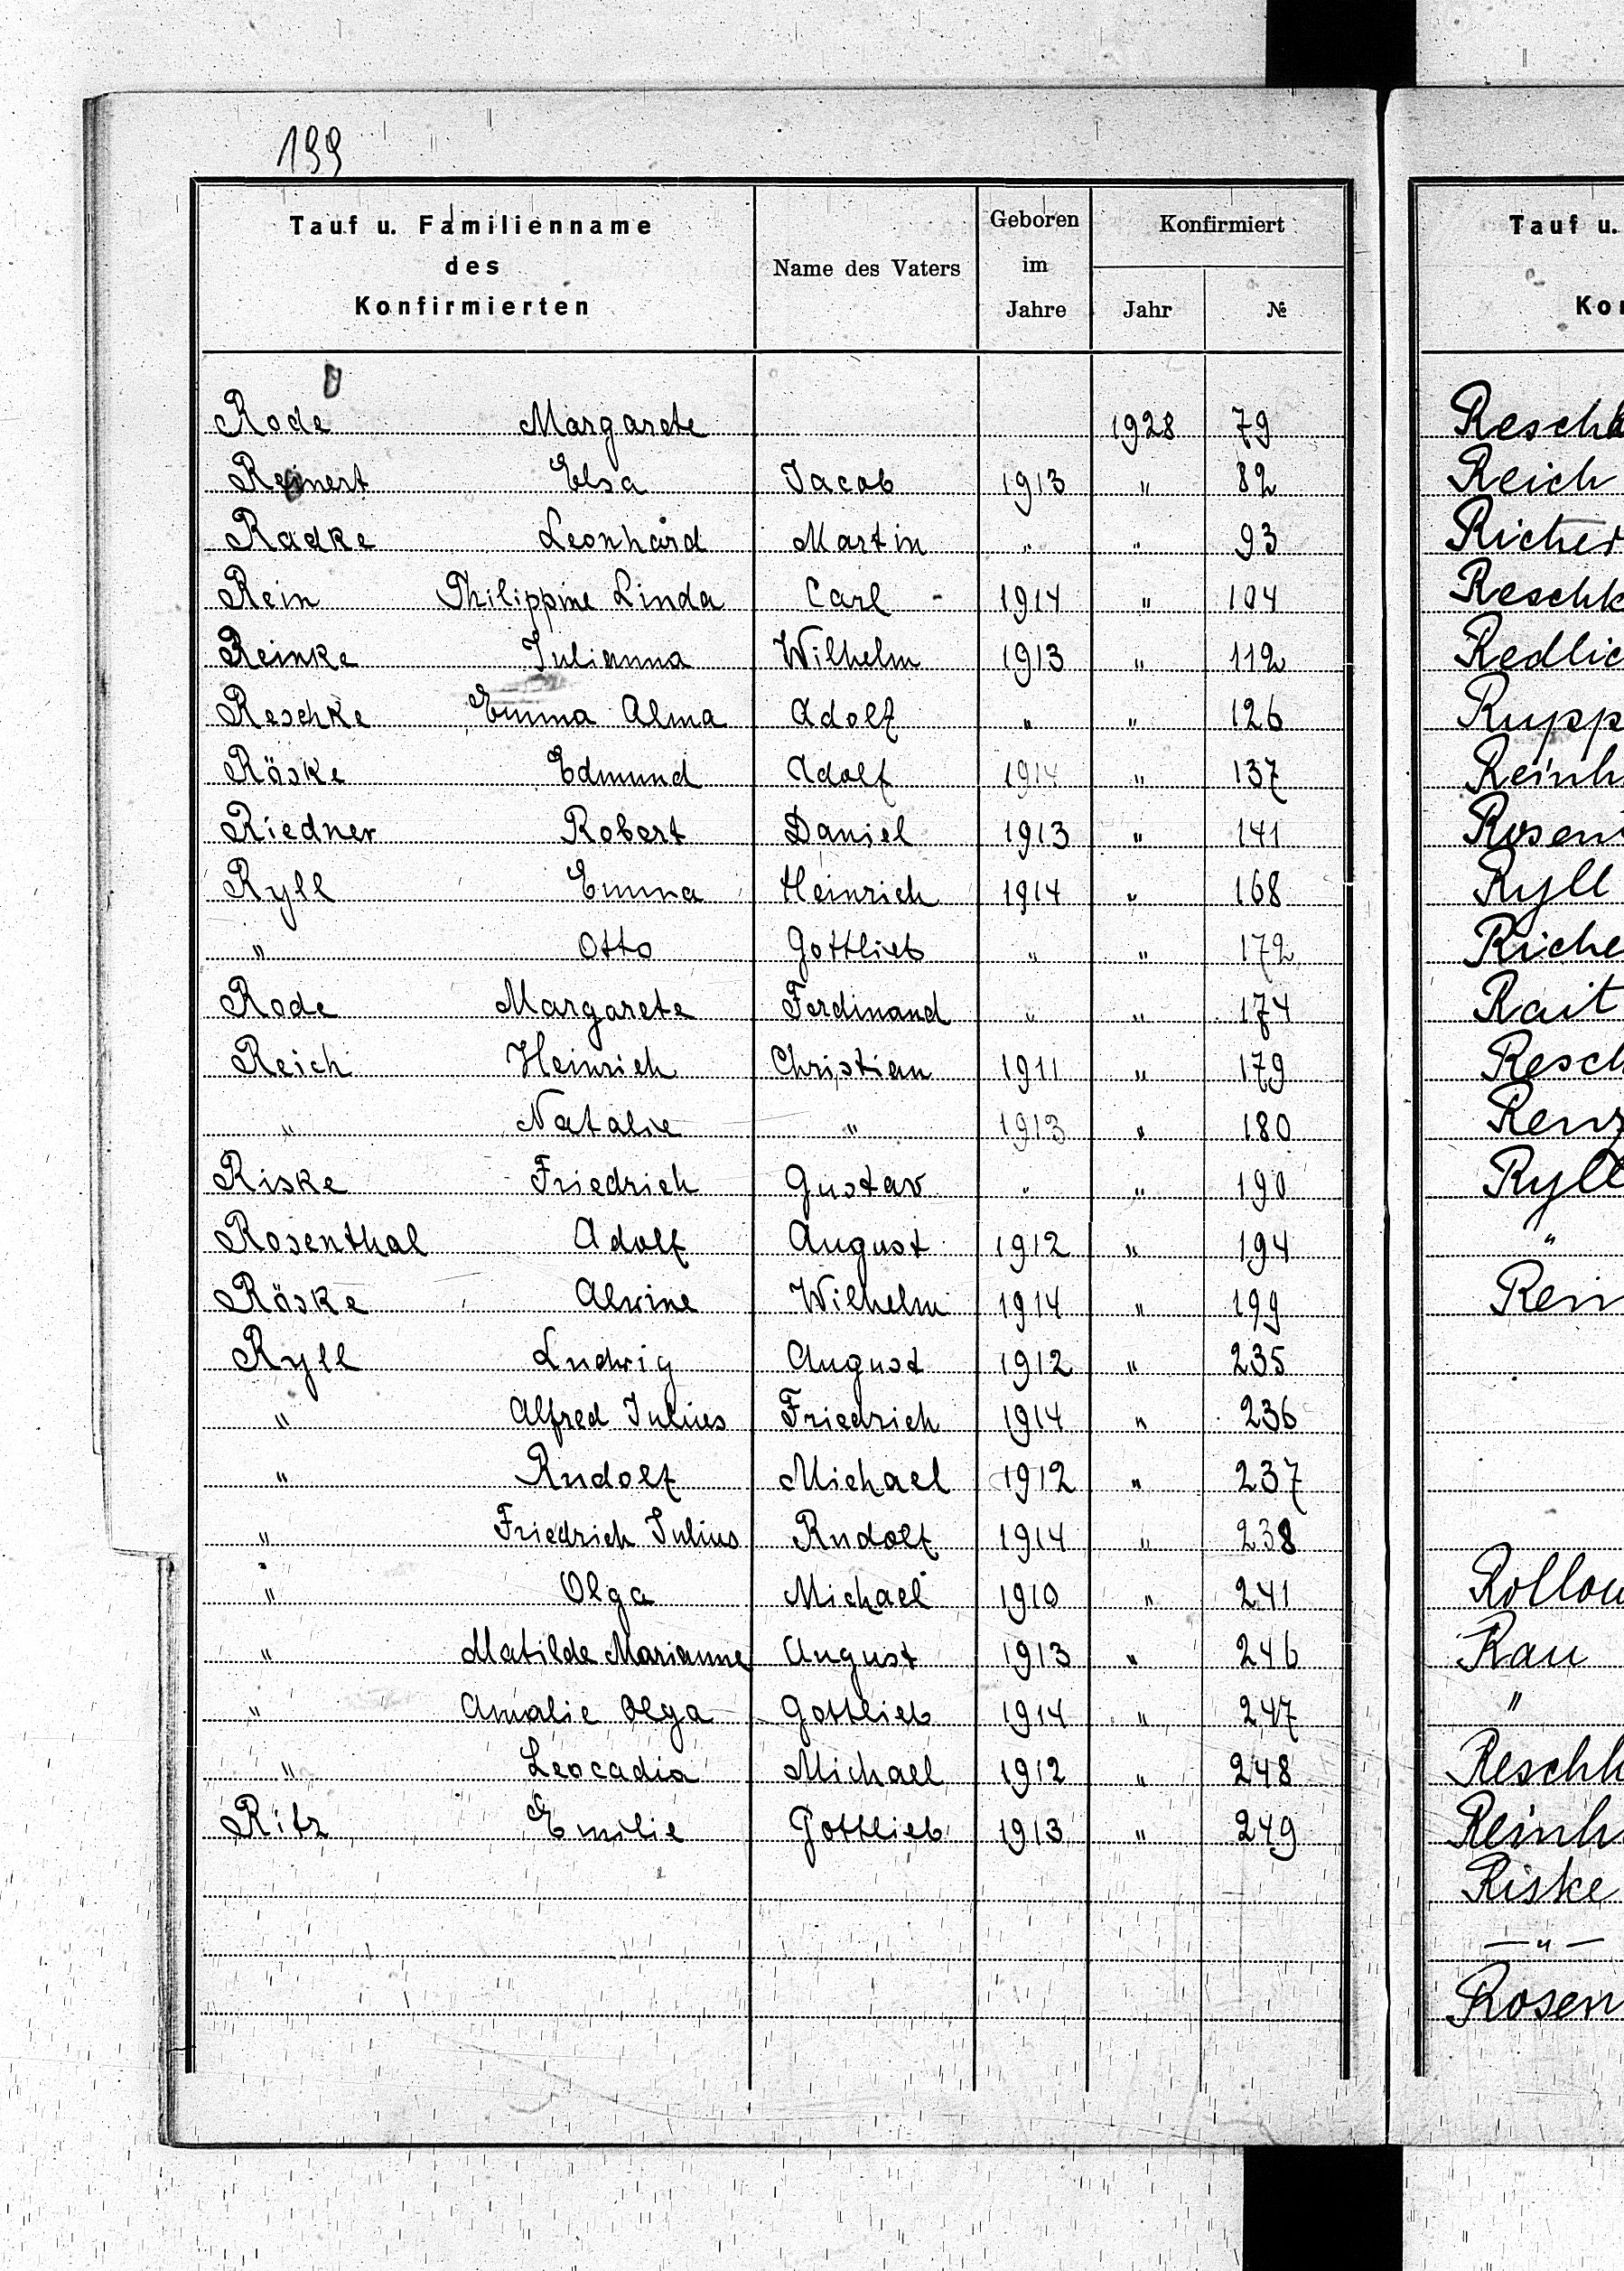 199
Tauf u. Familienname des Konfirmierten Name des Vaters Geboren im Jahre Konfirmiert Jahr №
Rode Margarete 1928 79
Reinert Elsa Jacob 1913 " 82
Radke Leonhard Martin " " 93
Rein Philippine Linda Carl - 1914 " 104
Reinke Julianna Wilhelm 1913 " 112
Reschke Emma Alma Adolf " " 126
Röske Edmund Adolf 1914 " 137
Riedner Robert Daniel 1913 " 141
Ryll Emma Heinrich 1914 " 168
" Otto Gottlieb " " 172
Rode Margarete Ferdinand " " 174
Reich Heinrich Christian 1911 " 179
" Natalie " 1913 " 180
Riske Friedrich Gustav " " 190
Rosenthal Adolf August 1912 " 194
Röske Alwine Wilhelm 1914 " 199
Ryll Ludwig August 1912 " 235
" Alfred Julius Friedrich 1914 " 236
" Rudolf Michael 1912 " 237
" Friedrich Julius Rudolf 1914 " 238
" Olga Michael 1910 " 241
" Matilde Marianne August 1913 " 246
" Amalie Olga Gottlieb 1914 " 247
" Leocadia Michael 1912 " 248
Ritz Emilie Gottlieb 1913 " 249
Tauf u.
Reich
Ryll
Rait
Ryll
"
Rau
"
Riske
—"—